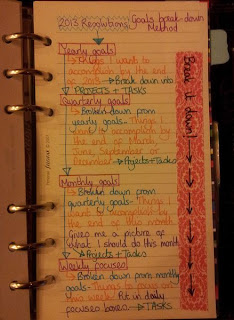 2013 Resolutions: Goals break down
Method
Yearly goals
Things I want to
accomplish by the end
of 2013 Break down into
PROJECTS + TASKS
Quarterly goals
Broken down from
yearly goals- Things I
want to accomplish by
the end of March,
June, September or
December Projects+Tasks
Monthly goals
Broken down from
quarterly goals- Things
I want to accomplish by
the end of this month
Gives me a picture of
what I should do this month
Projects + Tasks
Weekly focuses
Broken down from monthly
goals- Things to focus on
this week Put in daily
focuses boxes. TASKS
Break it down!